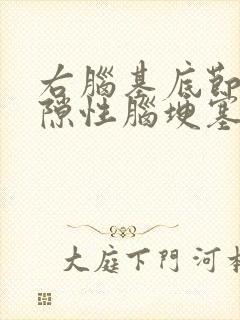 右腦基底節
隙性腦埂塞
大庭下門河